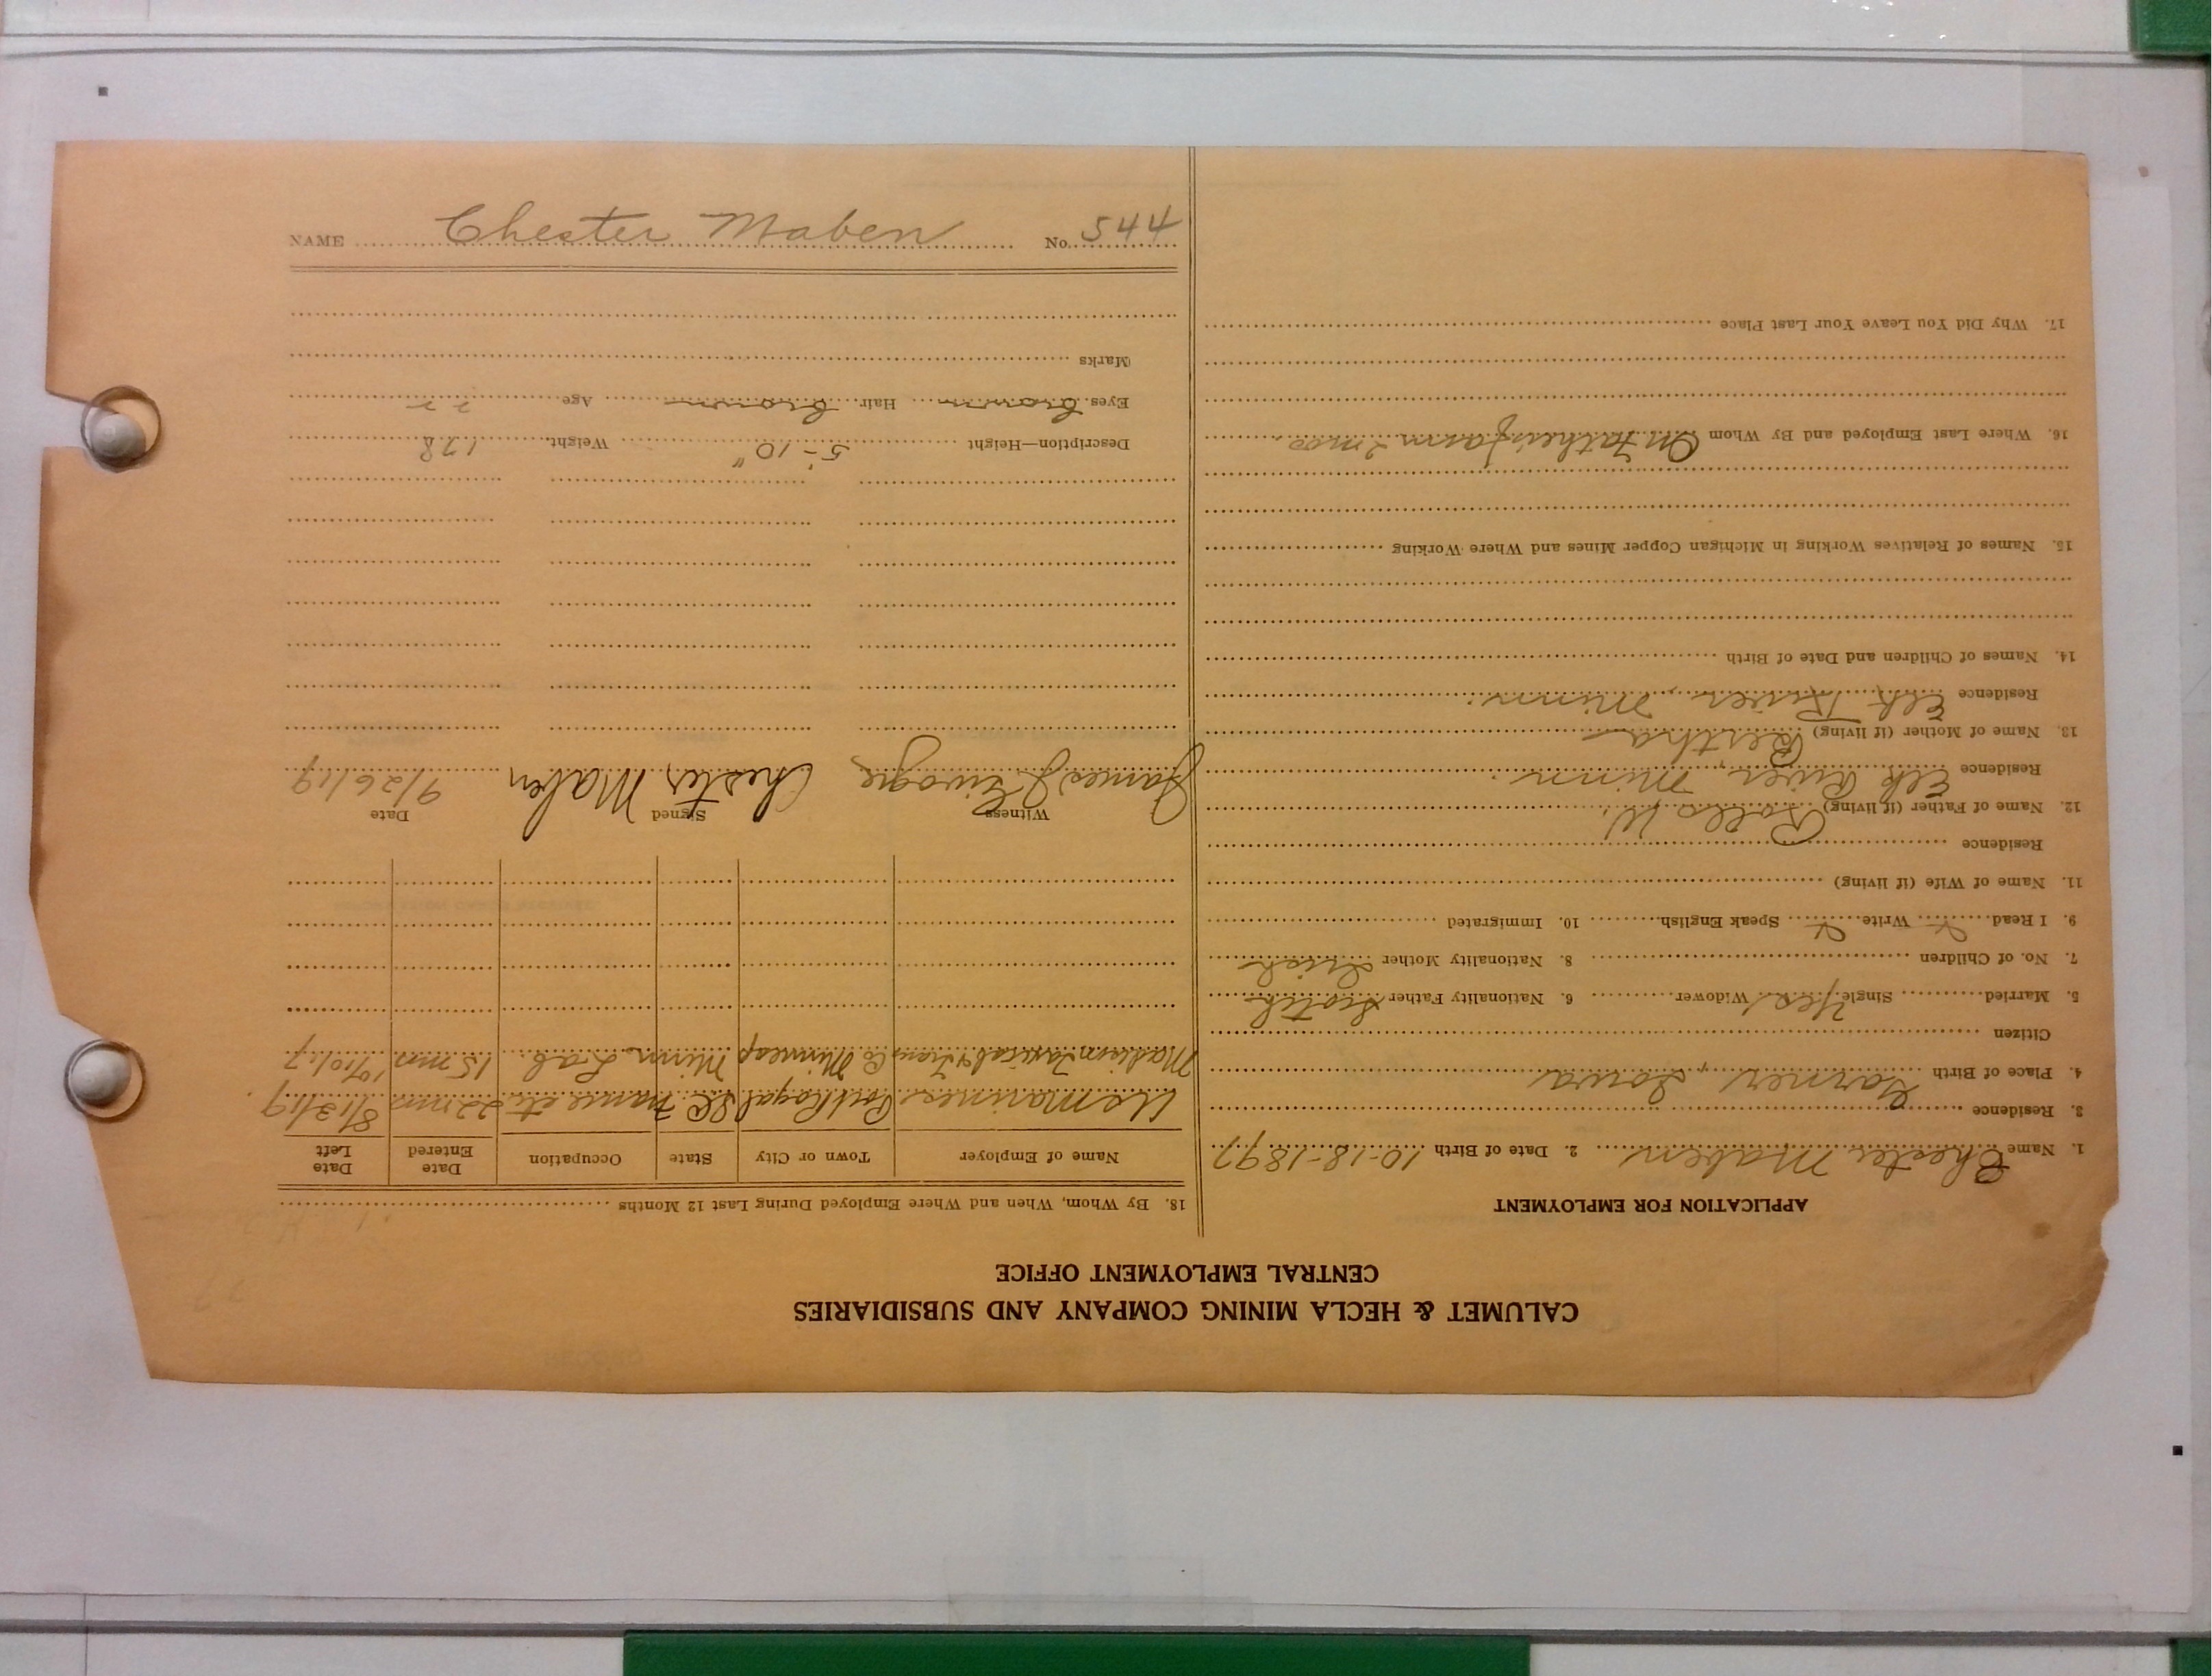 CALUMET & HECLA MINING COMPANY AND SUBSIDIARIES
CENTRAL EMPLOYMENT OFFICE
APPLICATION FOR EMPLOYMENT
1. Name Chester Maben 2. Date of Birth 10-18-1897
3. Residence
4. Place of Birth Garner, Iowa
Citizen
5. Married Single Yes Widower 6. Nationality Father Scotch
7. No. of Children 8. Nationality Mother Irish
9. I Read Write Speak English 10. Immigrated
11. Name of Wife (if living)
Residence
12. Name of Father (if living) Rollo W.
Residence Elk River, Minn.
13. Name of Mother (if living) Bertha
Residence Elk River, Minn.
14. Names of Children and Date of Birth
15. Names of Relatives Working in Michigan Copper Mines and Where Working
16. Where Last Employed and By Whom On Fathers farm 2 mos.
17. Why Did You Leave Your Last Place
18. By Whom, When and Where Employed During Last 12 Months
Name of Employer Town or City State Occupation Date Entered Date Left
US Marines Port Royal SC France etc 22 mos 8/13/19
Madison Taxicab & Trans Co Minneap Minn Lab. 15 mos 9/10/17
Witness Signed Date
James J. Chester Maben 9/26/19
Description—Height 5'-10" Weight 178
Eyes brown Hair brown Age 22
Marks
NAME Chester Maben No. 544